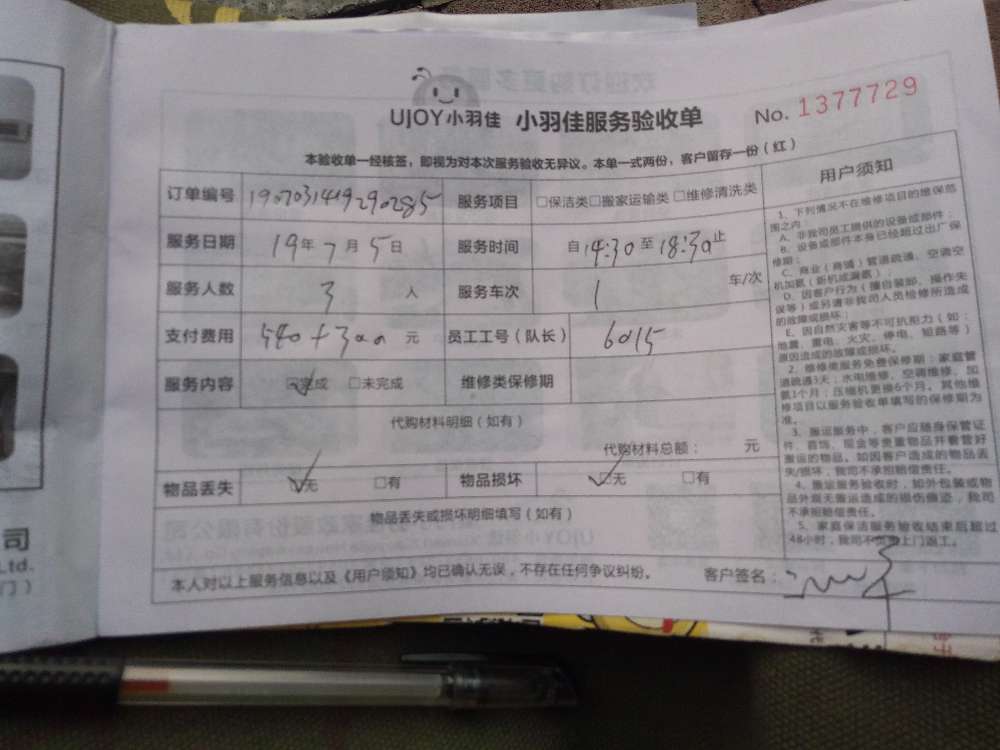 UJOY小羽佳 小羽佳服务验收单 No. 1377729
本验收单一经核签，即视为对本次服务验收无异议。本单一式两份，客户留存一份（红）
订单编号 1907031419290285 服务项目 □保洁类□搬家运输类□维修清洗类
服务日期 19年7月5日 服务时间 自14:30至18:30止
服务人数 3 人 服务车次 1 车/次
支付费用 540+300 元 员工工号（队长） 6015
服务内容 □完成 □未完成 维修类保修期
代购材料明细（如有）
代购材料总额： 元
物品丢失 □无 □有 物品损坏 □无 □有
物品丢失或损坏明细填写（如有）
本人对以上服务信息以及《用户须知》均已确认无误，不存在任何争议纠纷。 客户签名：
用户须知
1、下列情况不在维修项目的维保范
围之内：
A、非我司员工提供的设备或部件；
B、设备或部件本身已经超过出厂保
修期；
C、商业（商铺）管道疏通、空调空
机加氨（新机或漏氨）；
D、因客户行为（擅自装卸、操作失
误等）或另请非我司人员检修所造成
的故障或损坏；
E、因自然灾害等不可抗拒力（如：
地震、雷电、火灾、停电、短路等）
原因造成的故障或损坏。
2、维修类服务免费保修期：家庭管
道疏通3天；水电维修、空调维修、加
氨1个月；压缩机更换6个月。其他维
修项目以服务验收单填写的保修期为
准。
3、搬运服务中，客户应随身保管证
件、首饰、现金等贵重物品并看管好
搬运的物品。如因客户造成的物品丢
失/损坏，我司不承担赔偿责任。
4、搬运服务验收时，如外包装或物
品外观无搬运造成的损伤痕迹，我司
不承担赔偿责任。
5、家庭保洁服务验收结束后超过
48小时，我司不负责上门返工。
司
Ltd.
门）